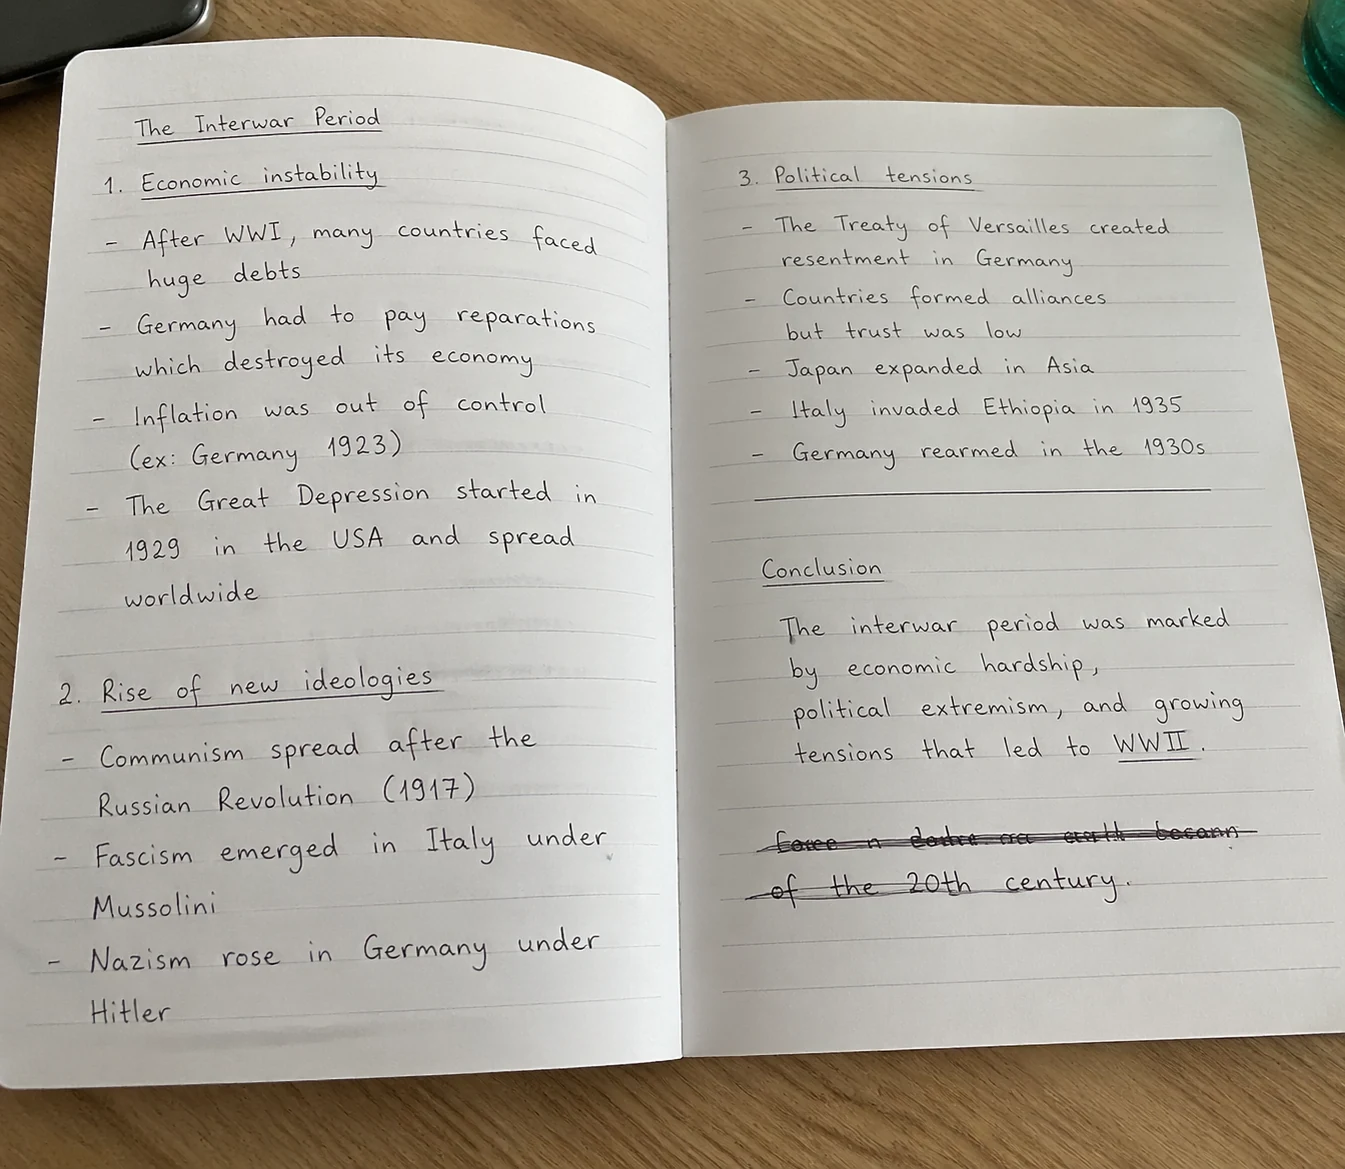 The Interwar Period
1. Economic instability
- After WWI, many countries faced
huge debts
- Germany had to pay reparations
which destroyed its economy
- Inflation was out of control
(ex: Germany 1923)
- The Great Depression started in
1929 in the USA and spread
worldwide
2. Rise of new ideologies
- Communism spread after the
Russian Revolution (1917)
- Fascism emerged in Italy under
Mussolini
- Nazism rose in Germany under
Hitler
3. Political tensions
- The Treaty of Versailles created
resentment in Germany
- Countries formed alliances
but trust was low
- Japan expanded in Asia
- Italy invaded Ethiopia in 1935
- Germany rearmed in the 1930s
Conclusion
The interwar period was marked
by economic hardship,
political extremism, and growing
tensions that led to WWII.
of the 20th century.